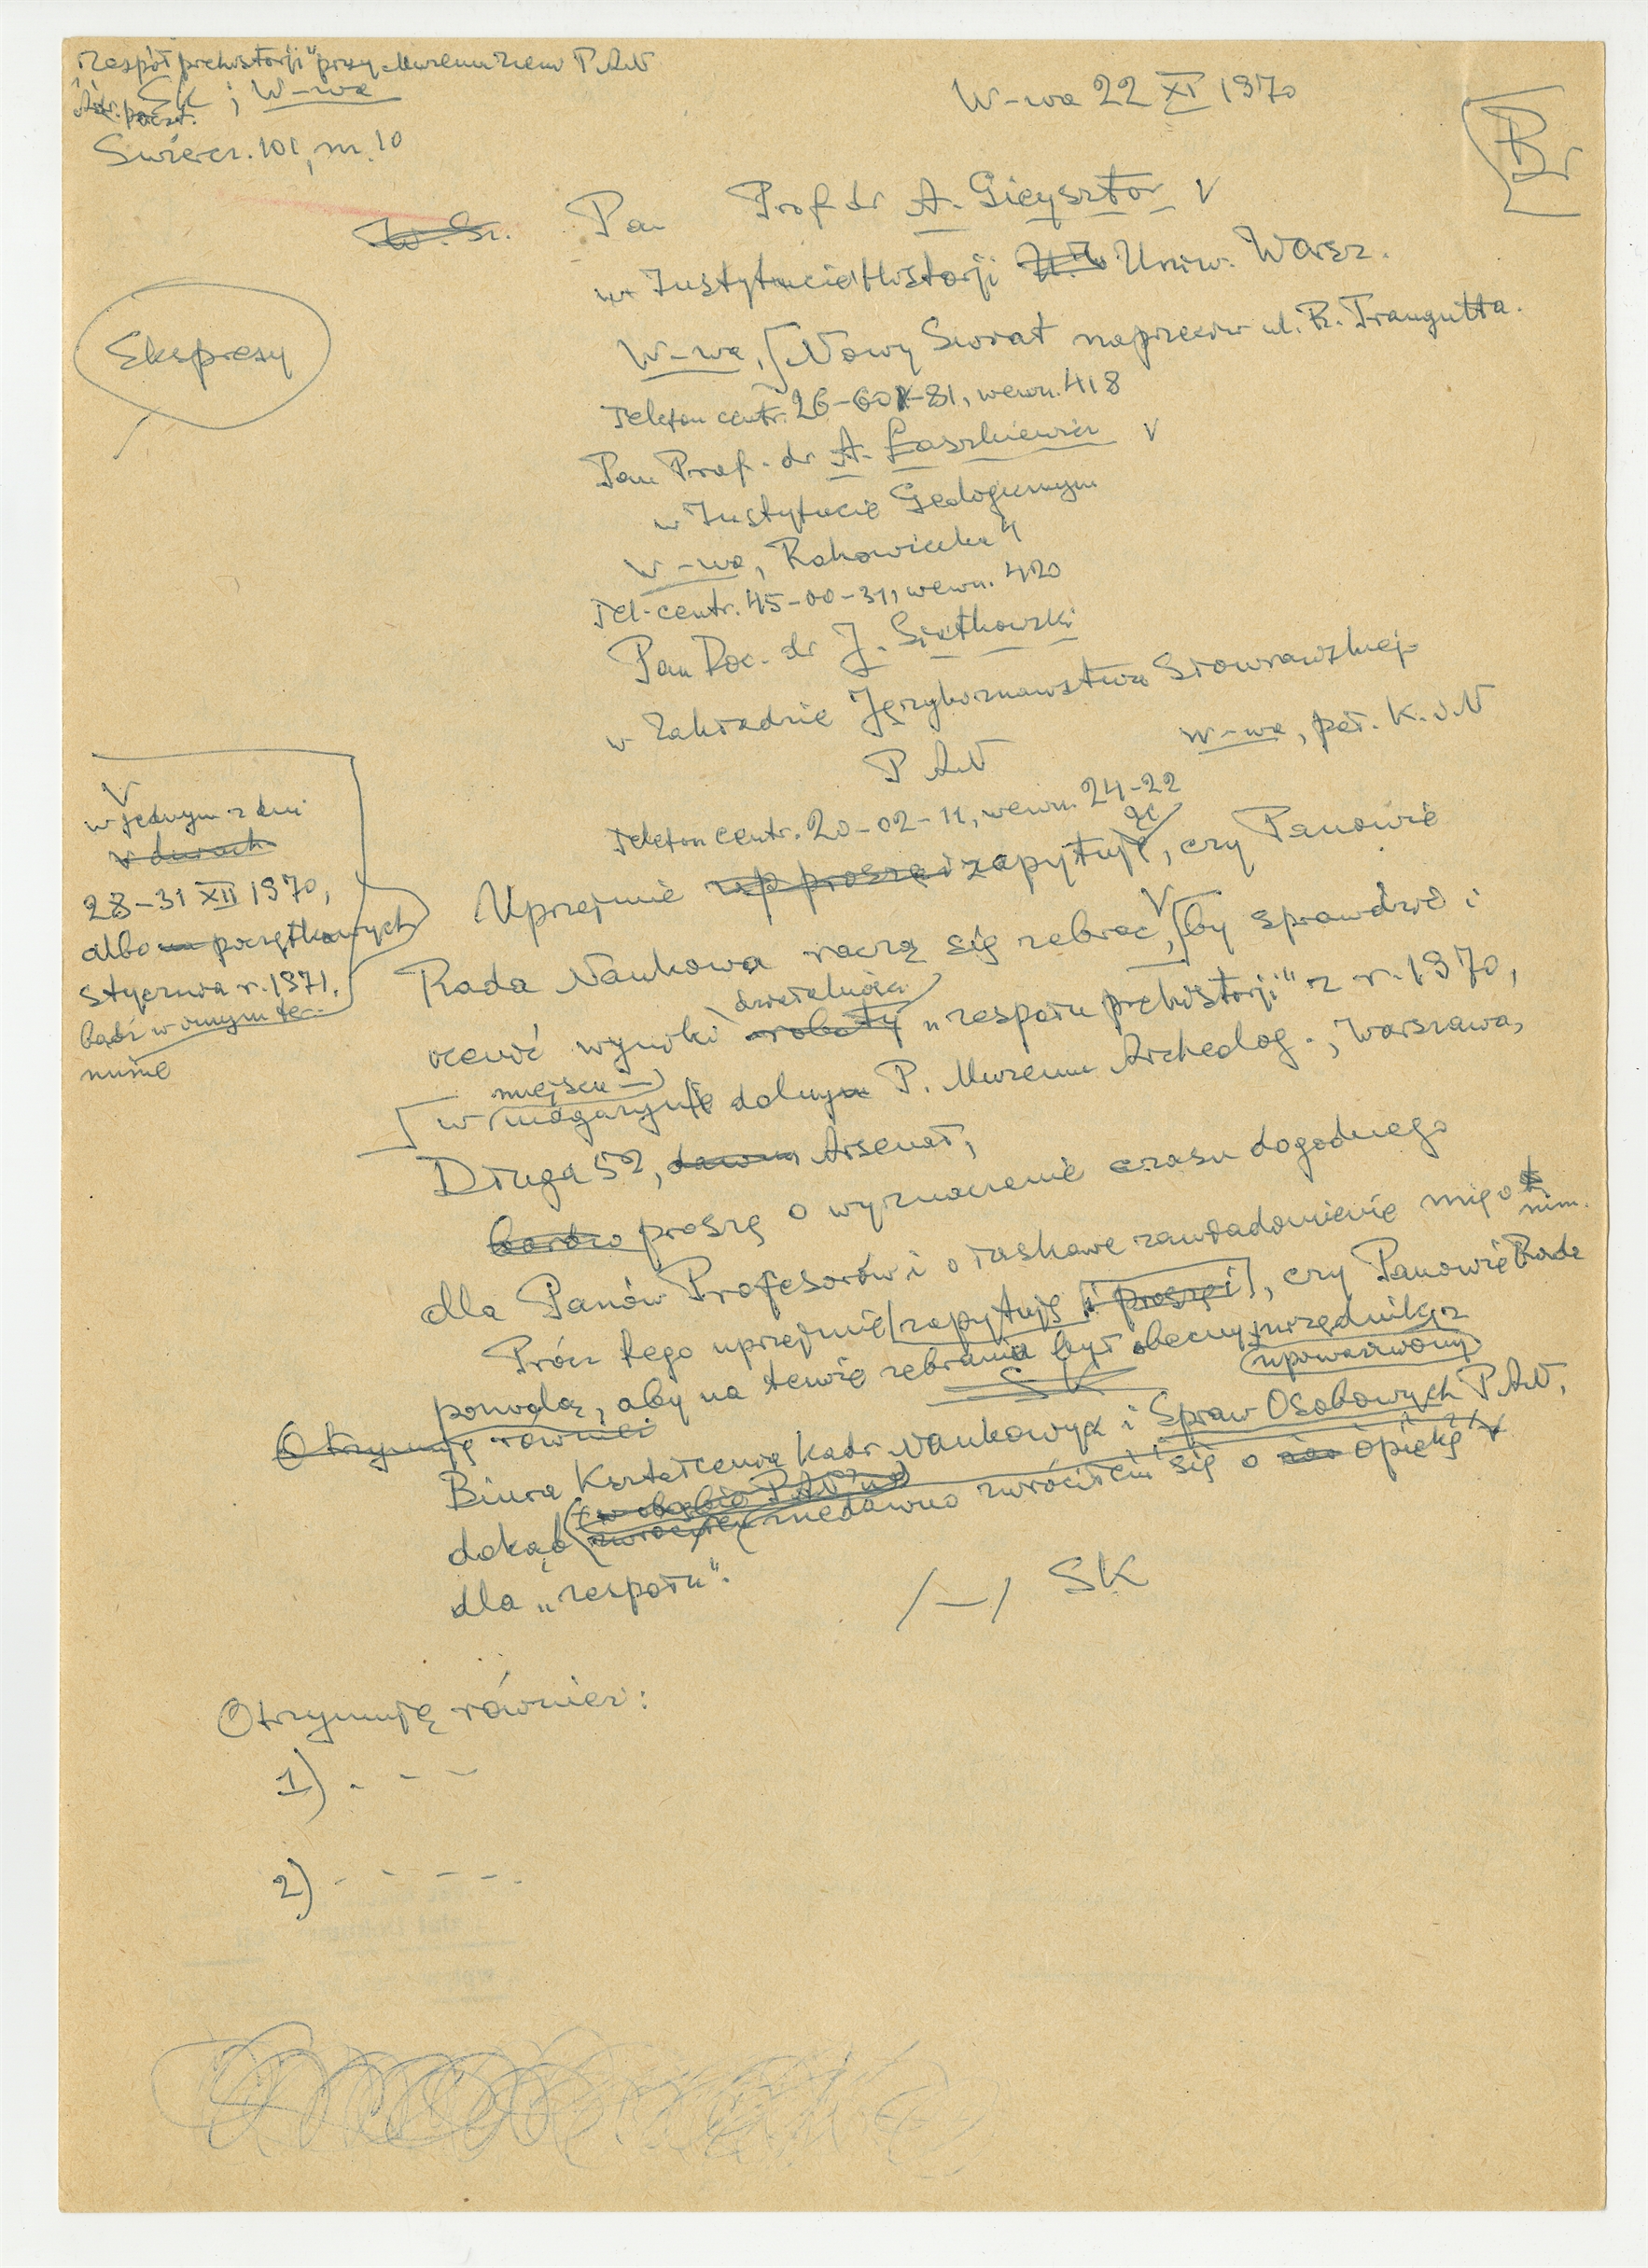 „Zespół prehistorji" przy Muzeum Ziem P AN
SK ; W-wa
Adr. poczt.
Świercz. 101, m. 10
W-wa 22 XI 1970
Br
W. Sz. Pan Prof dr A. Gieysztor V
w Instytucie Historji Uniw. Warsz.
W-wa, [Nowy Świat naprzeciw ul. R. Traugutta.
Ekspresy
Telefon centr. 26-60-81, wewn. 418
Pan Prof. dr A. Łaszkiewicz V
w Instytucie Geologicznym
W-wa, Rakowiecka 4
Tel. centr. 45-00-31, wewn. 420
Pan Doc. dr J. Siatkowski
w Zakładzie Językoznawstwa Słowiańskiego
P AN
W-wa, pał. K. i N
Telefon centr. 20-02-11, wewn. 24-22
Uprzejmie up proszę i zapytuję, czy Panowie
Rada Naukowa raczą się zebrać, V [by sprawdzić i
V
w jednym z dni
w dniach
28-31 XII 1970,
albo na początkowych
stycznia r. 1971,
bądź w innym ter-
minie
działalności
ocenić wyniki roboty „zespołu prehistorji" z r. 1970,
miejscu
[w magazynie dolnym P. Muzeum Archeolog., Warszawa,
Długa 52, dawny Arsenał,
bardzo proszę o wyznaczenie czasu dogodnego
dla Panów Profesorów i o łaskawe zawiadomienie mię o
nim.
Prócz tego uprzejmie [zapytuję i proszę i], czy Panowie Rada
pozwolą, aby na temże zebraniu był obecny urzędnik z
upoważniony
SK
Otrzymują również
Biura Kształcenia Kadr Naukowych i Spraw Osobowych P AN,
w obrębie P AN'u
dokąd zwróciłem niedawno zwróciłem się o opiekę
dla „zespołu".
/-/ SK
Otrzymują również:
1) . - -
2) - - - - .